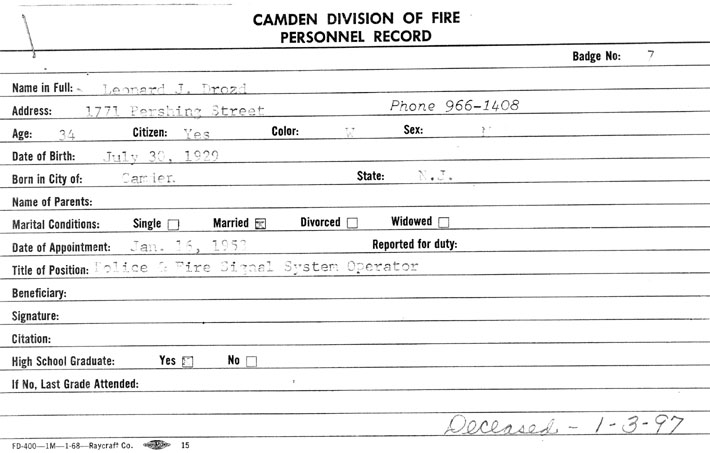 CAMDEN DIVISION OF FIRE
PERSONNEL RECORD
Badge No: 7
Name in Full: Leonard J. Drozd
Address: 1771 Pershing Street Phone 966-1408
Age: 34 Citizen: Yes Color: W Sex: M
Date of Birth: July 30, 1929
Born in City of: Camden State: N.J.
Name of Parents:
Marital Conditions: Single Married Divorced Widowed
Date of Appointment: Jan. 16, Reported for duty:
Title of Position: Police & Fire Signal System Operator
Beneficiary:
Signature:
Citation:
High School Graduate: Yes No
If No, Last Grade Attended:
Deceased - 1-3-97
FD-400—1M—1-68—Raycraft Co. 15